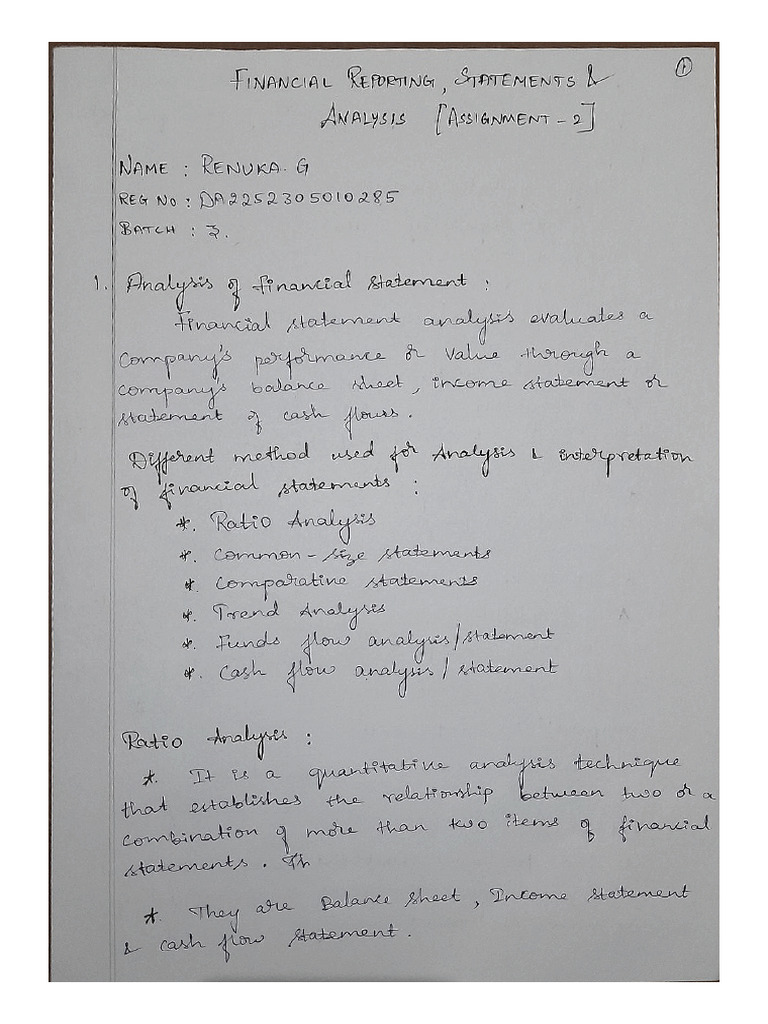 ①
FINANCIAL REPORTING, STATEMENTS &
ANALYSIS [ASSIGNMENT - 2]
NAME : RENUKA. G
REG NO : DA2252305010285
BATCH : 3.
1. Analysis of financial statement :
Financial statement analysis evaluates a
company's performance or value through a
company's balance sheet, income statement or
statement of cash flows.
Different method used for Analysis & interpretation
of financial statements :
*. Ratio Analysis
*. Common - size statements
*. Comparative statements
*. Trend Analysis
*. Funds flow analysis/statement
*. Cash flow analysis / statement
Ratio Analysis :
*. It is a quantitative analysis technique
that establishes the relationship between two or a
combination of more than two items of financial
statements. Th
*. They are Balance sheet, Income statement
& cash flow statement.